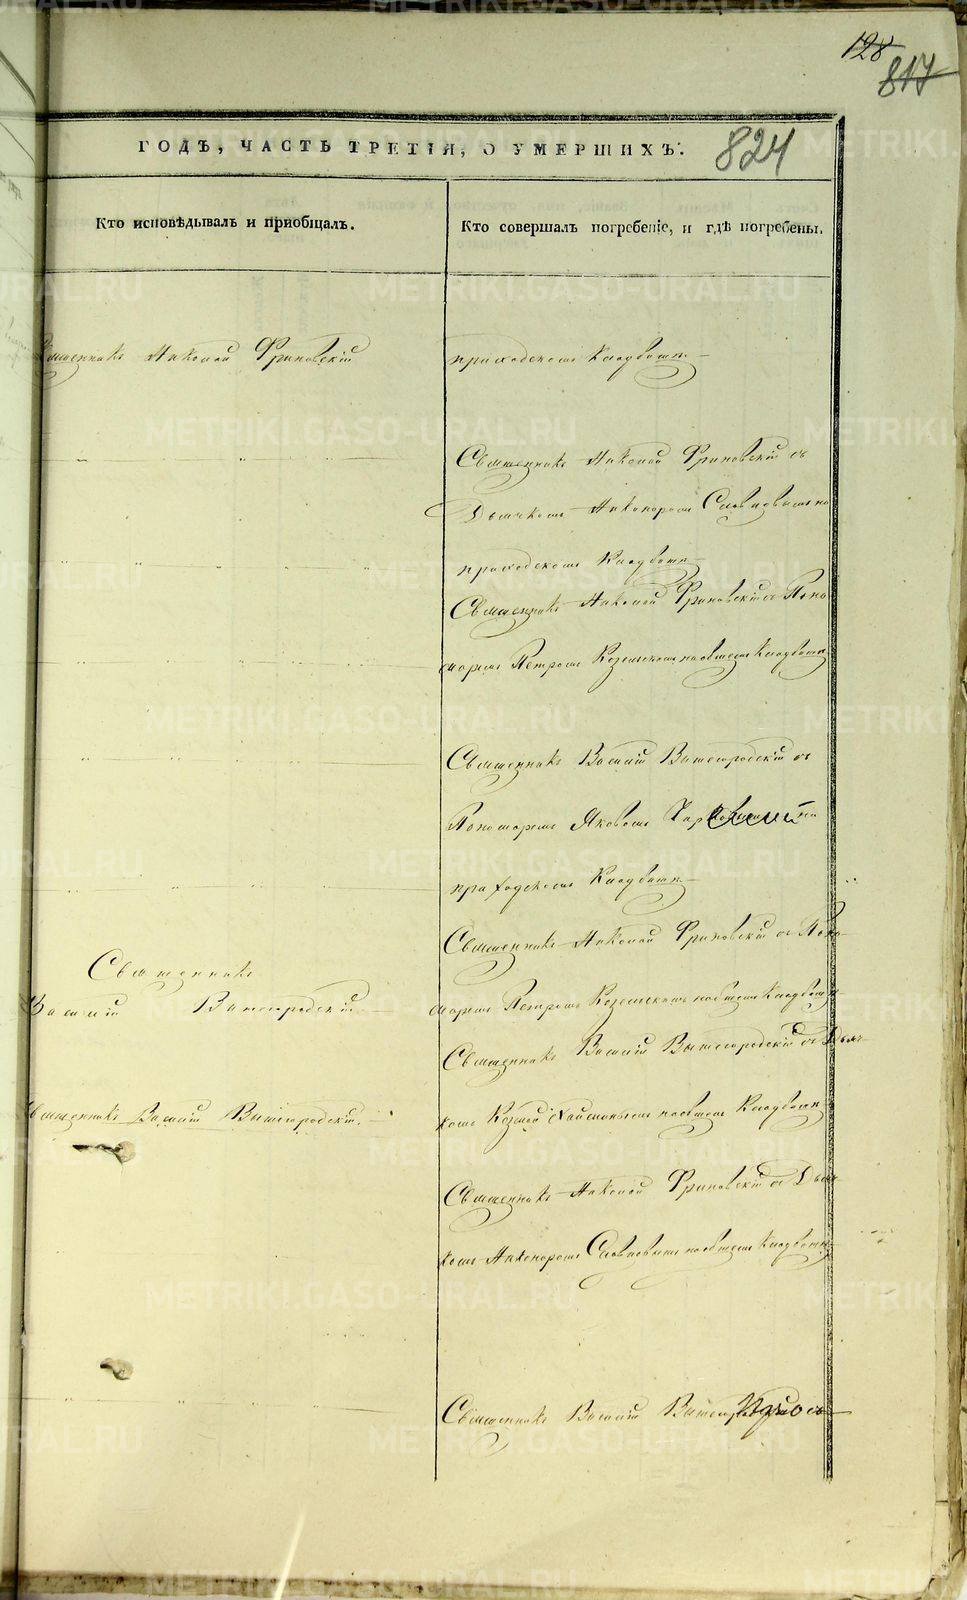 128
817
824
ГОДЪ, ЧАСТЬ ТРЕТІЯ, О УМЕРШИХЪ.
Кто исповѣдывалъ и пріобщалъ.
Кто совершалъ погребеніе, и гдѣ погребены.
Священникъ Николай Фриновскій
приходскомъ Кладбищѣ
Священникъ Николай Фриновскій съ
Дьячкомъ Никоноромъ на
приходскомъ Кладбищѣ
Священникъ Николай Фриновскій съ Поно
маремъ Петромъ на общемъ Кладбищѣ
Священникъ Василій Вышегородскій съ
Пономаремъ Яковомъ на
приходскомъ Кладбищѣ
Священникъ Николай Фриновскій съ Поно
Священникъ
Василій Вышегородскій
маремъ Петромъ на общемъ Кладбищѣ
Священникъ Василій Вышегородскій съ Дьяч
Священникъ Василій Вышегородскій.
комъ Козмой на общемъ Кладбищѣ
Священникъ Николай Фриновскій съ Дьяч
комъ Никоноромъ на общемъ Кладбищѣ
Священникъ Василій съ
METRIKI.GASO-URAL.RU